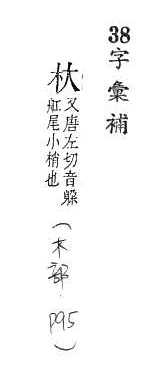 38字彙補
杕 又唐左切音躲
舡尾小梢也
(木部.P95)